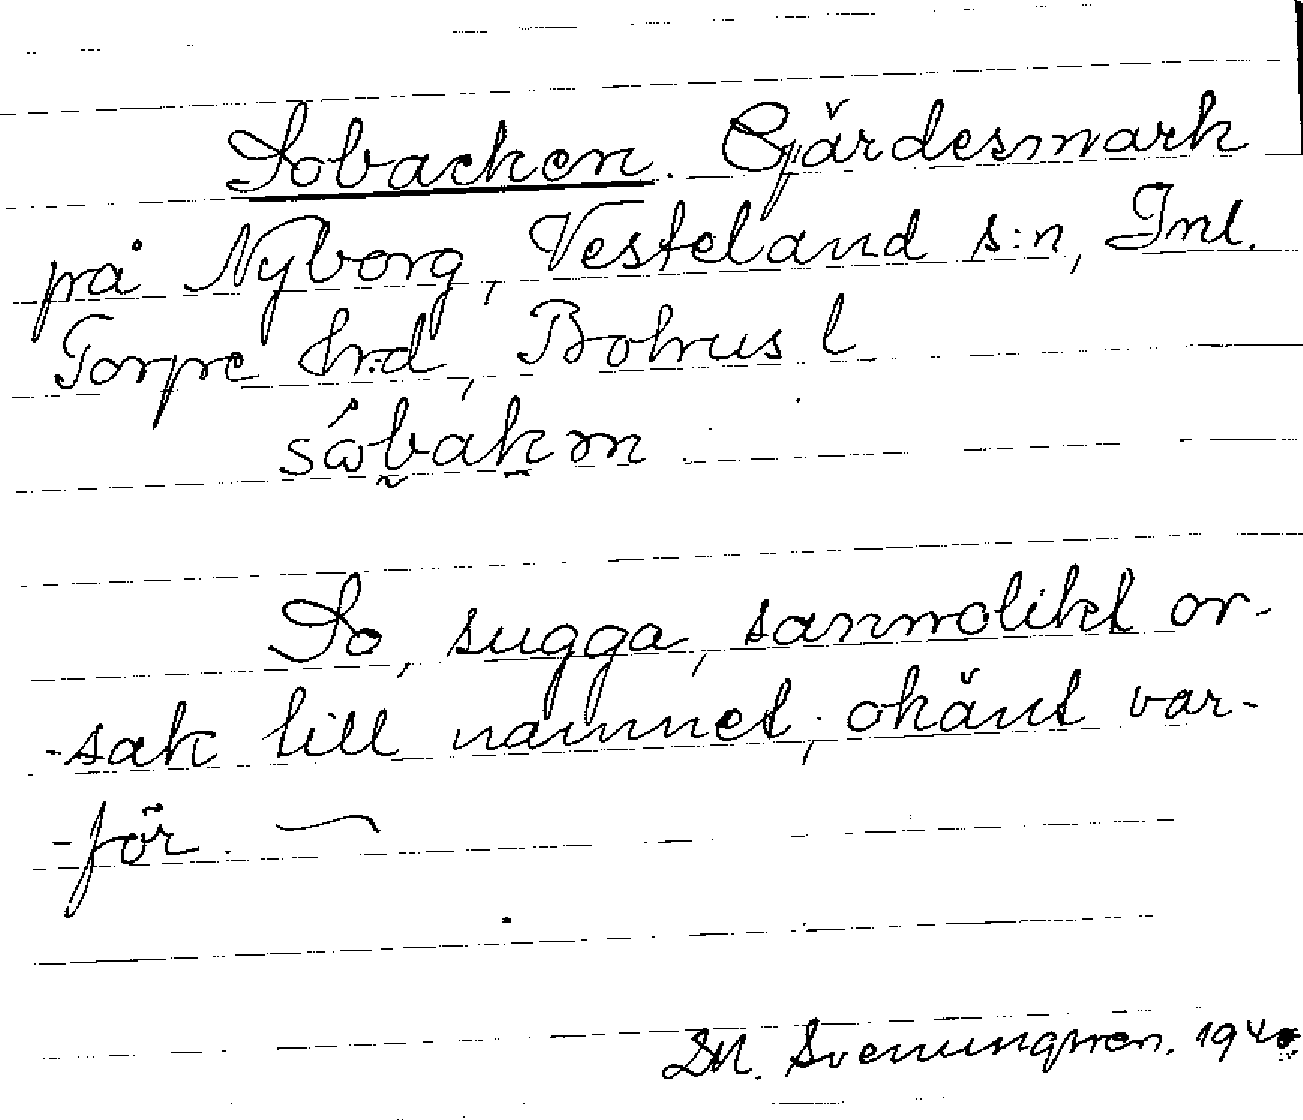 Sobacken. Gjärdesmark
på Nyborg, Vesteland s:n, Inl.
Torpe hrd, Bohus l
såbakɱ
So, sugga, sannolikt or-
-sak till namnet; okänt var-
-för. —
Svenungsson. 194